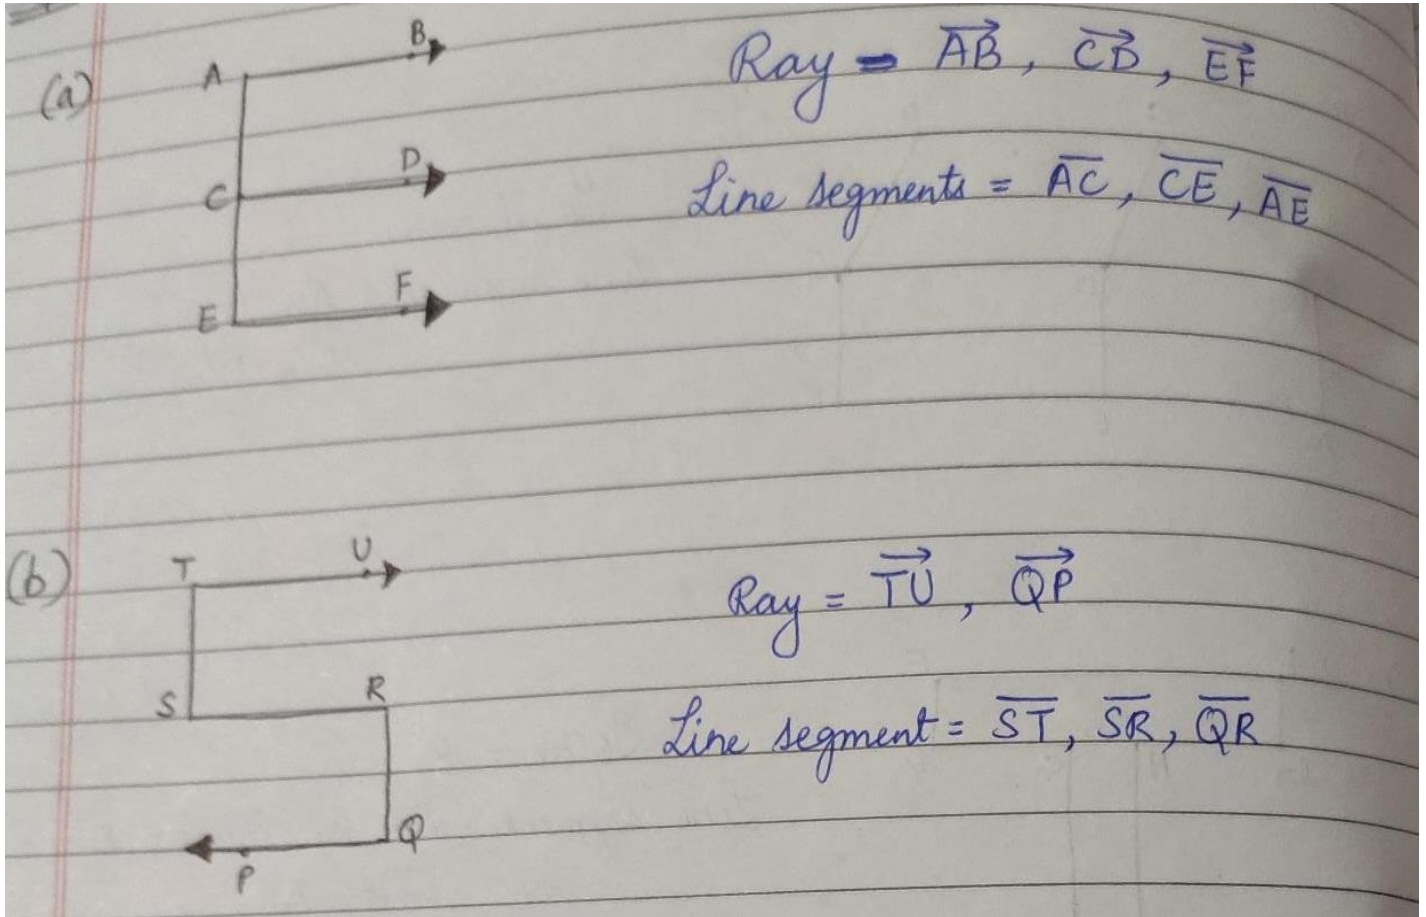 (a)
A
B
C
D
E
F
Ray = $\overrightarrow{AB}$, $\overrightarrow{CD}$, $\overrightarrow{EF}$
Line segments = $\overline{AC}$, $\overline{CE}$, $\overline{AE}$
(b)
T
U
S
R
Q
P
Ray = $\overrightarrow{TU}$, $\overrightarrow{QP}$
Line segment = $\overline{ST}$, $\overline{SR}$, $\overline{QR}$